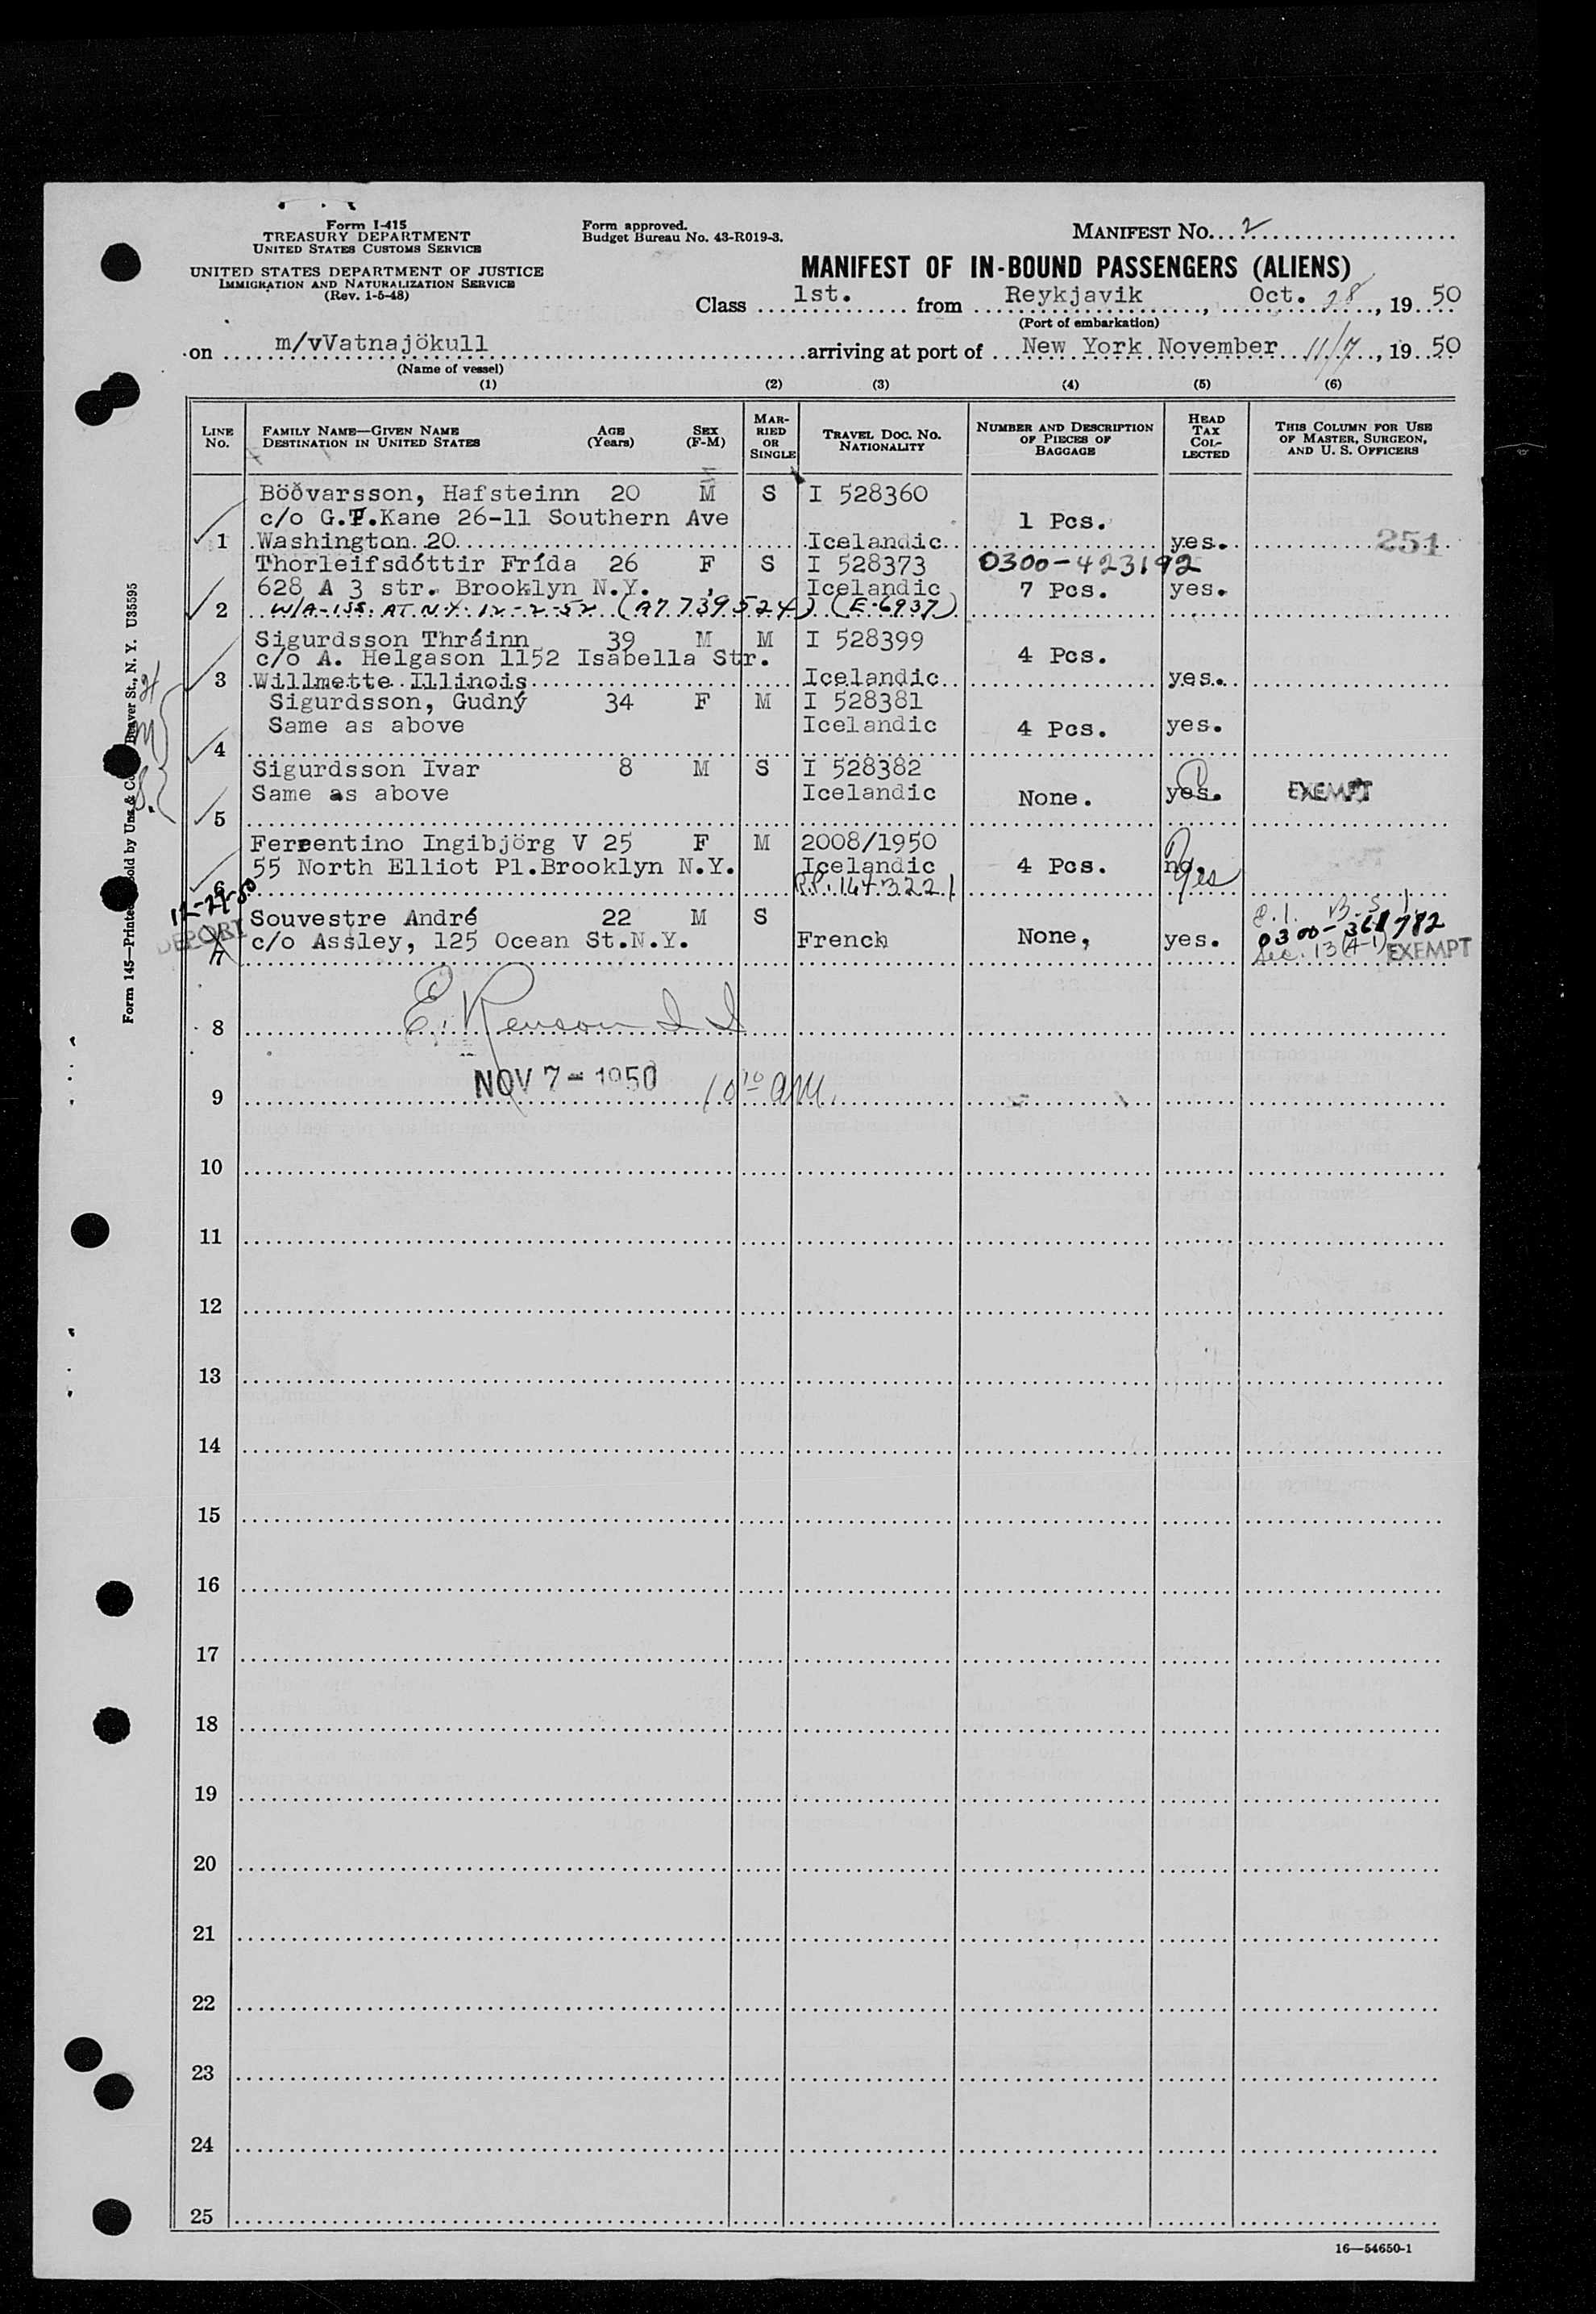 Form I-415
TREASURY DEPARTMENT
UNITED STATES CUSTOMS SERVICE
UNITED STATES DEPARTMENT OF JUSTICE
IMMIGRATION AND NATURALIZATION SERVICE
(Rev. 1-5-48)
Form approved.
Budget Bureau No. 43-R019-3.
MANIFEST NO. 2
MANIFEST OF IN-BOUND PASSENGERS (ALIENS)
Class 1st. from Reykjavik, Oct. 28, 1950
(Port of embarkation)
on m/vVatnajökull arriving at port of New York November 11/7, 1950
(Name of vessel)
(1) (2) (3) (4) (5) (6)
LINE NO. FAMILY NAME—GIVEN NAME DESTINATION IN UNITED STATES AGE (Years) SEX (F-M) MARRIED OR SINGLE TRAVEL DOC. NO. NATIONALITY NUMBER AND DESCRIPTION OF PIECES OF BAGGAGE HEAD TAX COLLECTED THIS COLUMN FOR USE OF MASTER, SURGEON, AND U. S. OFFICERS
Böðvarsson, Hafsteinn 20 M S I 528360
c/o G.T.Kane 26-11 Southern Ave 1 Pcs.
1 Washington 20 Icelandic yes. 251
Thorleifsdóttir Frída 26 F S I 528373 0300-423192
628 A 3 str. Brooklyn N.Y. Icelandic 7 Pcs. yes.
2 W/A-155. AT N.Y. 12-2-52 (A7 739524) (E-6937)
Sigurdsson Thráinn 39 M M I 528399
c/o A. Helgason 1152 Isabella Str. 4 Pcs.
3 Willmette Illinois Icelandic yes.
Sigurdsson, Gudný 34 F M I 528381
Same as above Icelandic 4 Pcs. yes.
4
Sigurdsson Ivar 8 M S I 528382
Same as above Icelandic None. yes. EXEMPT
5
Ferrentino Ingibjörg V 25 F M 2008/1950
55 North Elliot Pl.Brooklyn N.Y. Icelandic 4 Pcs. no. Yes
6 R.P. 1643221
12-29-50
Souvestre André 22 M S B.S.I.
0300-361782
DEPORT c/o Assley, 125 Ocean St.N.Y. French None, yes.
7 Sec. 13(A-1) EXEMPT
8 E. Renson I I
NOV 7-1950 10 10 AM.
9
10
11
12
13
14
15
16
17
18
19
20
21
22
23
24
25
16—54650-1
Beaver St., N. Y. U35595
Form 145—Printed